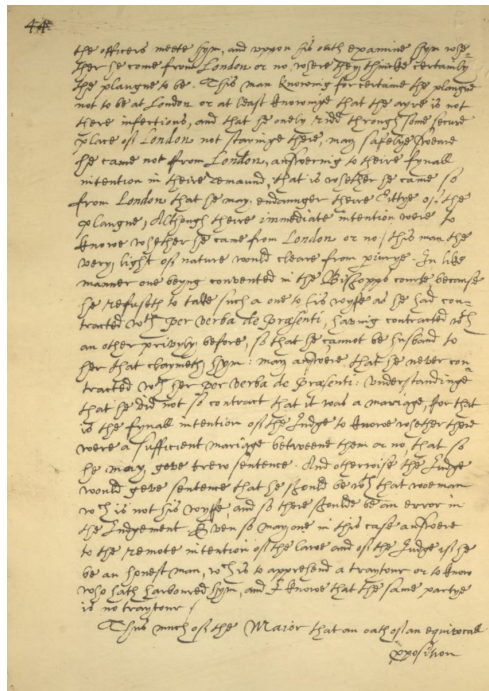 44
the officers meete hym, and uppon his oath examine hym whe-
ther he come from London or no where they thinke certainly
the plaugue to be. This man knowing for certaine the plaugue
not to be at London or at least knowinge that the ayre is not
there infectious, and that he onely ridd through some secure
place of London not stayinge there, may safelye sweare
he came not from London, answering to theire fynall
intention in theire demaund, that is whether he came so
from London that he may endaunger theire Cittye of the
plaugue, Although theire immediate intention were to
knowe whether he came from London or no, this man the
very light of nature would cleare from periurye. In like
maner one beyng convented in the Bishopps courte because
he refuseth to take such a one to his wyffe as he had con-
tracted wth per verba de præsenti, having contracted wth
an other privily before, so that he cannot be husband to
her that claymeth hym: may answere that he never con-
tracted wth her per verba de præsenti: understandinge
that he did not so contract that it was a mariage, for that
is the fynall intention of the Judge to knowe whether there
were a sufficient mariage betweene them or no, that so
he may geve trew sentence. And otherwise the Judge
would geve sentence that he should be wth that woeman
wch is not his wyffe and so there should be an error in
the Judgement. Even so may one in this case answere
to the remote intention of the lawe and of the Judge if he
be an honest man, wch is to apprehend a traytour or to know
who hath harboured hym, and I knowe that the same partye
is no traytour.
Thus much of the Maior that an oath of an equivocall
pposition